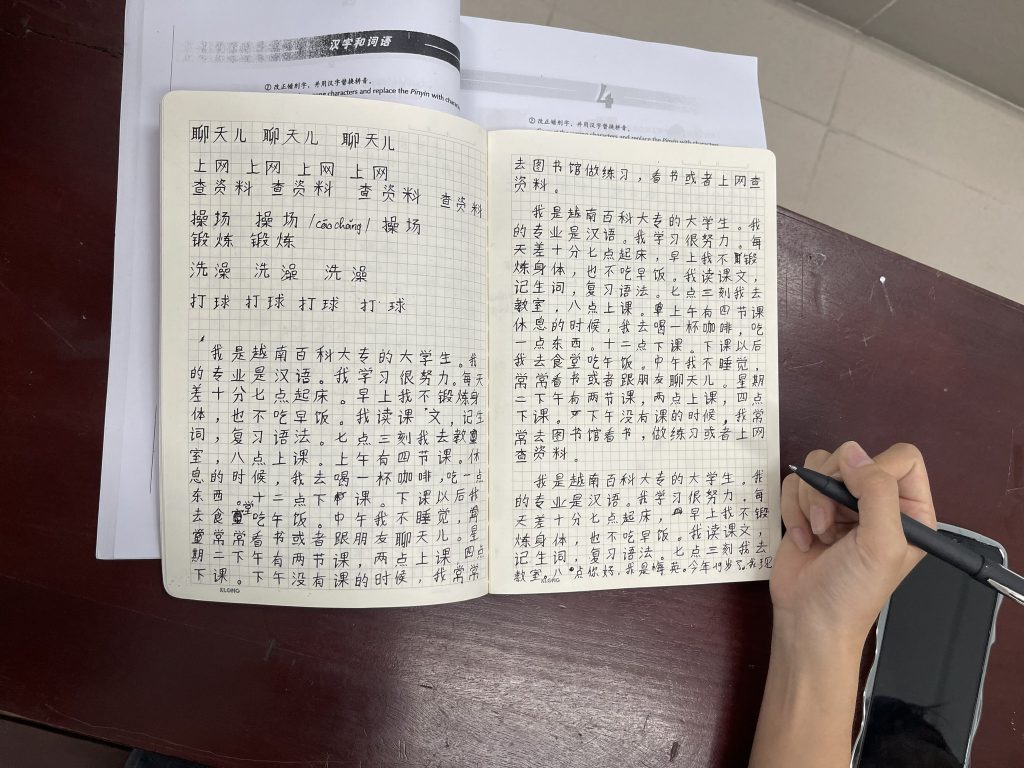 汉字和词语
② 改正错别字，并用汉字替换拼音。
characters and replace the Pinyin with
4
② 改正错别字，并用汉字替换拼音。
聊天儿 聊天儿 聊天儿
上网 上网 上网 上网
查资料 查资料 查资料 查资料
操场 操场 /cāo chǎng/ 操场
锻炼 锻炼
洗澡 洗澡 洗澡
打球 打球 打球 打球
我是越南百科大专的大学生。我
的专业是汉语。我学习很努力。每天
差十分七点起床。早上我不锻炼身
体，也不吃早饭。我读课文，记生
词，复习语法。七点三刻我去教
室，八点上课。上午有四节课。休
息的时候，我去喝一杯咖啡，吃一点
东西。十二点下课。下课以后我
去食堂吃午饭。中午我不睡觉，
常常看书或者跟朋友聊天儿。星
期二下午有两节课，两点上课，四点
下课。下午没有课的时候，我常常
KLONG
去图书馆做练习，看书或者上网查
资料。
我是越南百科大专的大学生。我
的专业是汉语。我学习很努力。每
天差十分七点起床，早上我不锻
炼身体，也不吃早饭。我读课文，
记生词，复习语法。七点三刻我去
教室，八点上课。上午有四节课
休息的时候，我去喝一杯咖啡，吃
一点东西。十二点下课。下课以后
我去食堂吃午饭。中午我不睡觉，
常常看书或者跟朋友聊天儿。星期
二下午有两节课，两点上课，四点
下课。下午没有课的时候，我常
常去图书馆看书，做练习或者上网
查资料。
我是越南百科大专的大学生。我
的专业是汉语。我学习很努力，每
天差十分七点起床，早上我不锻
炼身体，也不吃早饭。我读课文，
记生词，复习语法。七点三刻我去
教室，八点你好，我是 英。今年19岁了。我是
KLONG